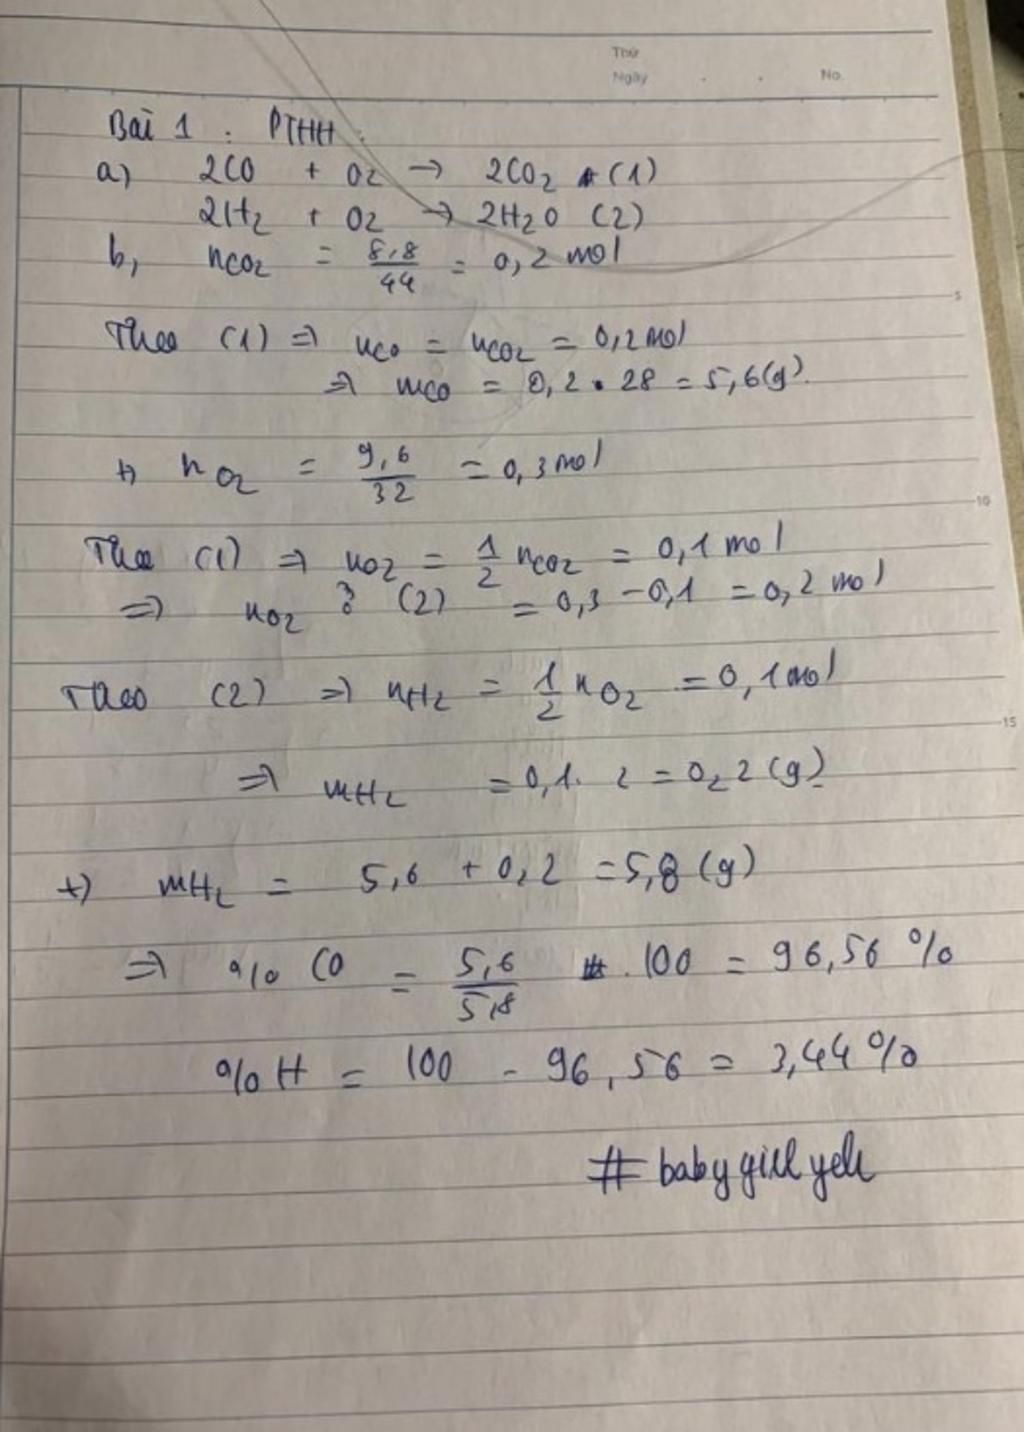 Thứ
Ngày . . No.
Bài 1 : PTHH :
a) 2CO + O2 → 2CO2 (1)
2H2 + O2 → 2H2O (2)
b, nCO2 = 8,8/44 = 0,2 mol
5
Theo (1) ⇒ nCO = nCO2 = 0,2 mol
⇒ mCO = 0,2 . 28 = 5,6(g).
+) nO2 = 9,6/32 = 0,3 mol
10
Theo (1) ⇒ nO2 = 1/2 nCO2 = 0,1 mol
⇒ nO2 ở (2) = 0,3 - 0,1 = 0,2 mol
Theo (2) ⇒ nH2 = 1/2 nO2 = 0,1 mol
15
⇒ mH2 = 0,1. 2 = 0,2 (g)
+) mH2 = 5,6 + 0,2 = 5,8 (g)
⇒ % CO = 5,6/5,8 . 100 = 96,56 %
% H = 100 - 96,56 = 3,44 %
# babygirlyeh